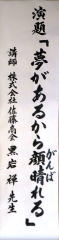 演題「夢があるから顔晴れる」
がんば
講師 株式会社佐藤商会 黒岩 禅 先生